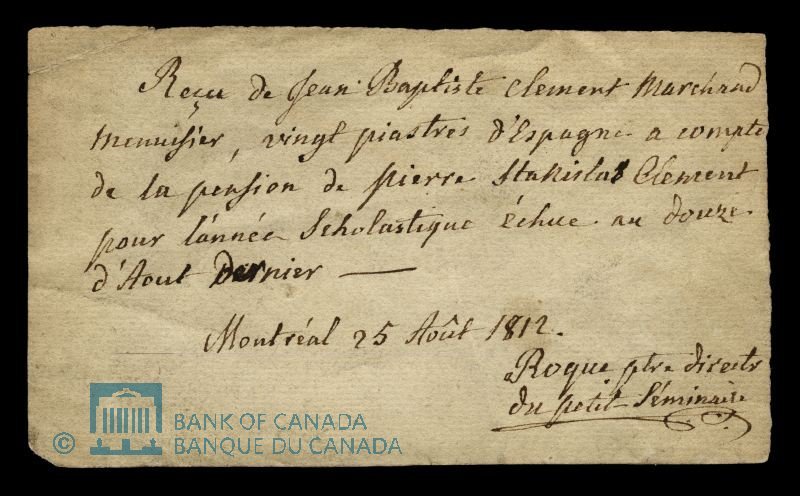 Reçu de Jean Baptiste Clement Marchand
Menuisier, vingt piastres d'Espagne a compte
de la pension de pierre Stanislas Clement
pour l'année Scholastique échue au douze
d'Aout Dernier —
Montréal 25 Août 1812.
Roque ptre directr
du petit Séminaire
© BANK OF CANADA
BANQUE DU CANADA